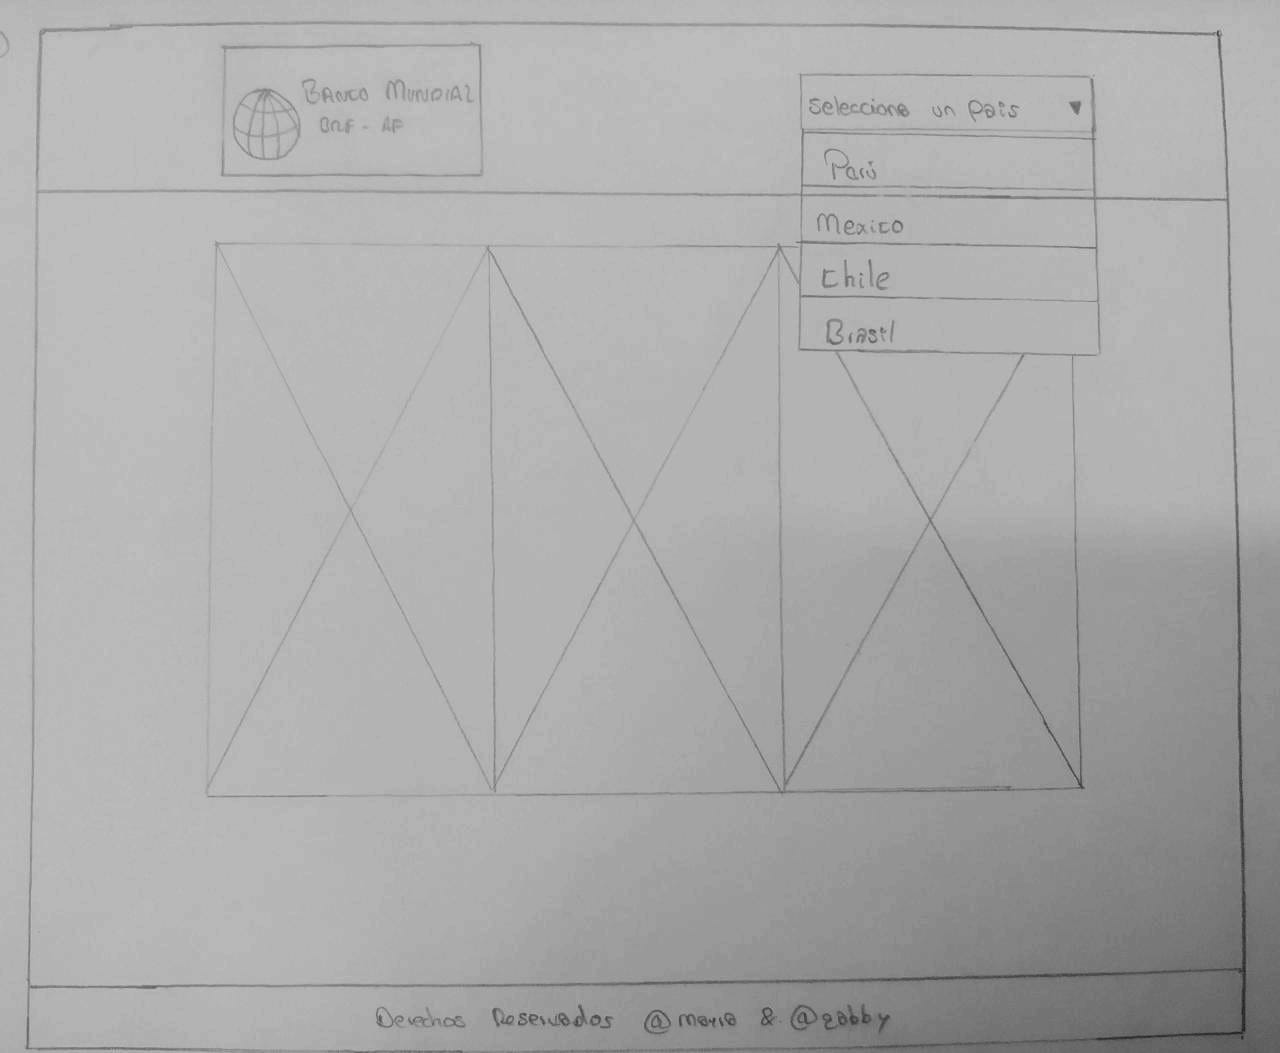 BANCO MUNDIAL
BIRF - AF
Seleccione un país
Perú
Mexico
Chile
Brasil
Derechos Reservados @maria & @gabby